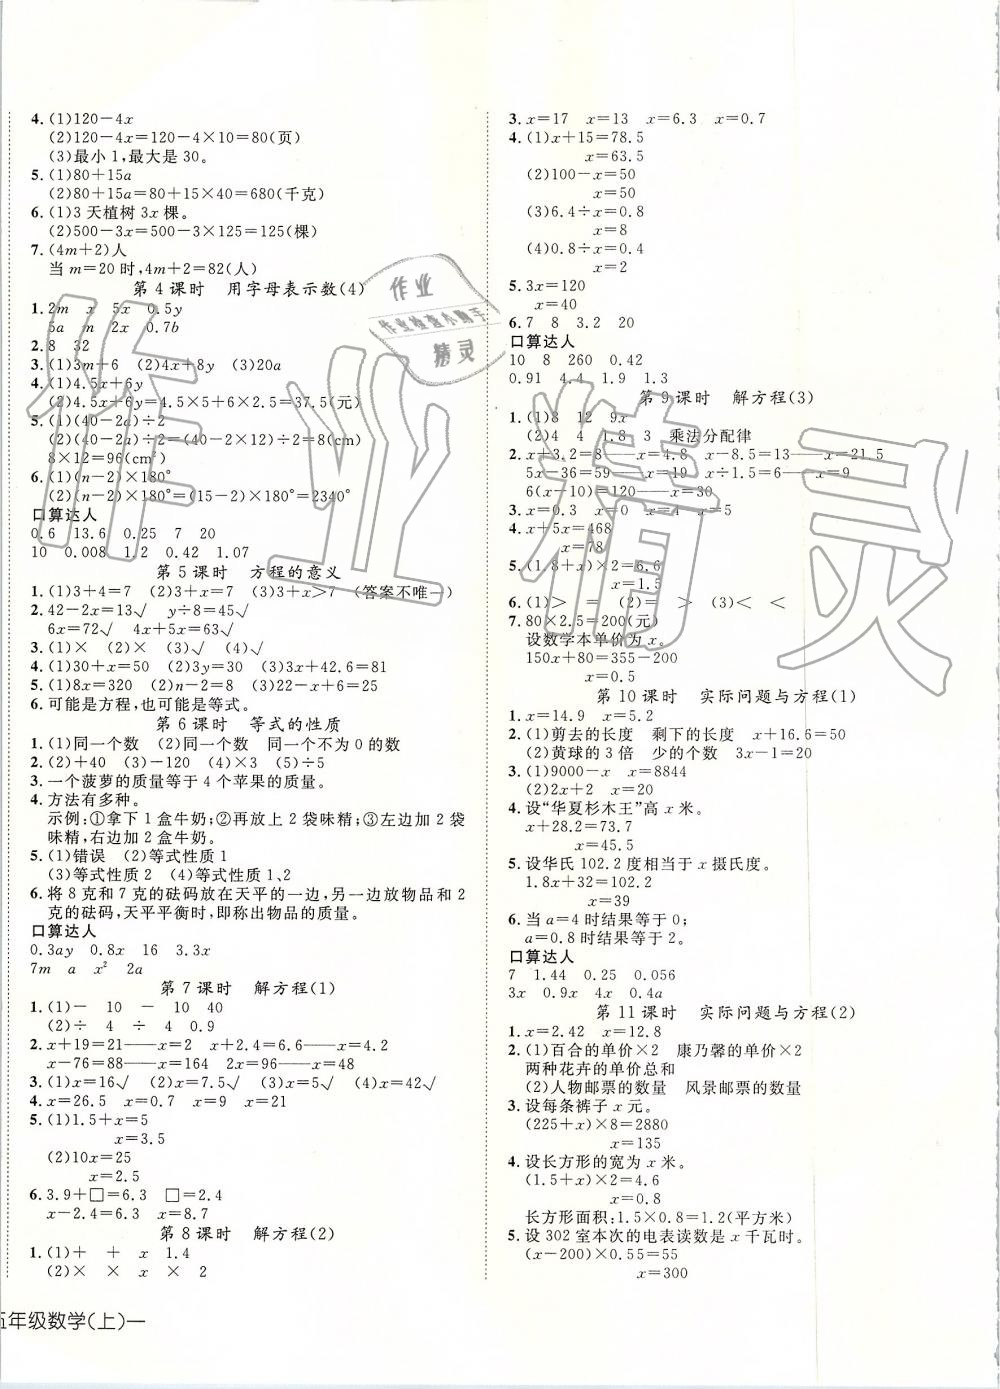 4. (1)120-4x
(2)120-4x=120-4×10=80(页)
(3)最小1,最大是30。
5. (1)80+15a
(2)80+15a=80+15×40=680(千克)
6. (1)3天植树3x棵。
(2)500-3x=500-3×125=125(棵)
7. (4m+2)人
当m=20时,4m+2=82(人)
第4课时 用字母表示数(4)
1. 2m x 5x 0.5y
5a m 2x 0.7b
2. 8 32
3. (1)3m+6 (2)4x+8y (3)20a
4. (1)4.5x+6y
(2)4.5x+6y=4.5×5+6×2.5=37.5(元)
5. (1)(40-2a)÷2
(2)(40-2a)÷2=(40-2×12)÷2=8(cm)
8×12=96(cm²)
6. (1)(n-2)×180°
(2)(n-2)×180°=(15-2)×180°=2340°
口算达人
0.6 13.6 0.25 7 20
10 0.008 1.2 0.42 1.07
第5课时 方程的意义
1. (1)3+4=7 (2)3+x=7 (3)3+x>7 (答案不唯一)
2. 42-2x=13√ y÷8=45√
6x=72√ 4x+5x=63√
3. (1)× (2)× (3)√ (4)√
4. (1)30+x=50 (2)3y=30 (3)32.6+42.6=81
5. (1)8x=320 (2)n-2=8 (3)22-x+6=25
6. 可能是方程,也可能是等式。
第6课时 等式的性质
1. (1)同一个数 (2)同一个数 同一个不为0的数
2. (2)+40 (3)-120 (4)×3 (5)÷5
3. 一个菠萝的质量等于4个苹果的质量。
4. 方法有多种。
示例:①拿下1盒牛奶;②再放上2袋味精;③左边加2袋
味精,右边加2盒牛奶。
5. (1)错误 (2)等式性质1
(3)等式性质2 (4)等式性质1、2
6. 将8克和7克的砝码放在天平的一边,另一边放物品和2
克的砝码,天平平衡时,即称出物品的质量。
口算达人
0.3ay 0.8x 16 3.3x
7m a x² 2a
第7课时 解方程(1)
1. (1)- 10 - 10 40
(2)÷ 4 ÷ 4 0.9
2. x+19=21——x=2 x+2.4=6.6——x=4.2
x-76=88——x=164 2x=96——x=48
3. (1)x=16√ (2)x=7.5√ (3)x=51√ (4)x=42√
4. x=26.5 x=0.7 x=9 x=21
5. (1)1.5+x=5
x=3.5
(2)10x=25
x=2.5
6. 3.9+□=6.3 □=2.4
x-2.4=6.3 x=8.7
第8课时 解方程(2)
1. (1)+ + x 1.4
(2)× × x × 2
五年级数学(上)一
3. x=17 x=13 x=6.3 x=0.7
4. (1)x+15=78.5
x=63.5
(2)100-x=50
x=50
(3)6.4÷x=0.8
x=8
(4)0.8÷x=0.4
x=2
5. 3x=120
x=40
6. 7 8 3.2 20
口算达人
10 8 260 0.42
0.91 4.4 1.9 1.3
第9课时 解方程(3)
1. (1)8 12 9x
(2)4 4 1.8 3 乘法分配律
2. x+3.2=8——x=4.8 x-8.5=13——x=21.5
5x-36=59——x=19 x÷1.5=6——x=9
6(x-10)=120——x=30
3. x=0.3 x=0 x=4 x=5
4. x+5x=468
x=78
5. (1.8+x)×2=6.6
x=1.5
6. (1)> = (2)= > (3)< <
7. 80×2.5=200(元)
设数学本单价为x。
150x+80=355-200
x=0.5
第10课时 实际问题与方程(1)
1. x=14.9 x=5.2
2. (1)剪去的长度 剩下的长度 x+16.6=50
(2)黄球的3倍 少的个数 3x-1=20
3. (1)9000-x x=8844
(2)2x+2 x=20
4. 设“华夏杉木王”高x米。
x+28.2=73.7
x=45.5
5. 设华氏102.2度相当于x摄氏度。
1.8x+32=102.2
x=39
6. 当a=4时结果等于0;
a=0.8时结果等于2。
口算达人
7 1.44 0.25 0.056
3x 0.9x 4x 0.4a
第11课时 实际问题与方程(2)
1. x=2.42 x=12.8
2. (1)百合的单价×2 康乃馨的单价×2
两种花卉的单价总和
(2)人物邮票的数量 风景邮票的数量
3. 设每条裤子x元。
(225+x)×8=2880
x=135
4. 设长方形的宽为x米。
(1.5+x)×2=4.6
x=0.8
长方形面积:1.5×0.8=1.2(平方米)
5. 设302室本次的电表读数是x千瓦时。
(x-200)×0.55=55
x=300
作业
作业检查小助手
精灵
作业精灵